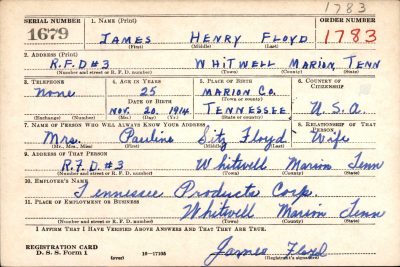 1783
SERIAL NUMBER 1. NAME (Print) ORDER NUMBER
1679 JAMES HENRY FLOYD 1783
(First) (Middle) (Last)
2. ADDRESS (Print)
R.F.D #3 WHITWELL MARION, TENN
(Number and street or R. F. D. number) (Town) (County) (State)
3. TELEPHONE 4. AGE IN YEARS 5. PLACE OF BIRTH 6. COUNTRY OF CITIZENSHIP
None 25 MARION CO.
(Town or county)
DATE OF BIRTH
NOV. 20, 1914 TENNESSEE U.S.A
(Exchange) (Number) (Mo.) (Day) (Yr.) (State or country)
7. NAME OF PERSON WHO WILL ALWAYS KNOW YOUR ADDRESS 8. RELATIONSHIP OF THAT PERSON
Mrs. Pauline Sitz Floyd Wife
(Mr., Mrs., Miss) (First) (Middle) (Last)
9. ADDRESS OF THAT PERSON
R.F.D #3 Whitwell Marion Tenn
(Number and street or R. F. D. number) (Town) (County) (State)
10. EMPLOYER'S NAME
Tennessee Products Corp.
11. PLACE OF EMPLOYMENT OR BUSINESS
Whitwell Marion Tenn
(Number and street or R. F. D. number) (Town) (County) (State)
I AFFIRM THAT I HAVE VERIFIED ABOVE ANSWERS AND THAT THEY ARE TRUE.
REGISTRATION CARD James Floyd
D. S. S. Form 1 (over) 16—17105 (Registrant's signature)